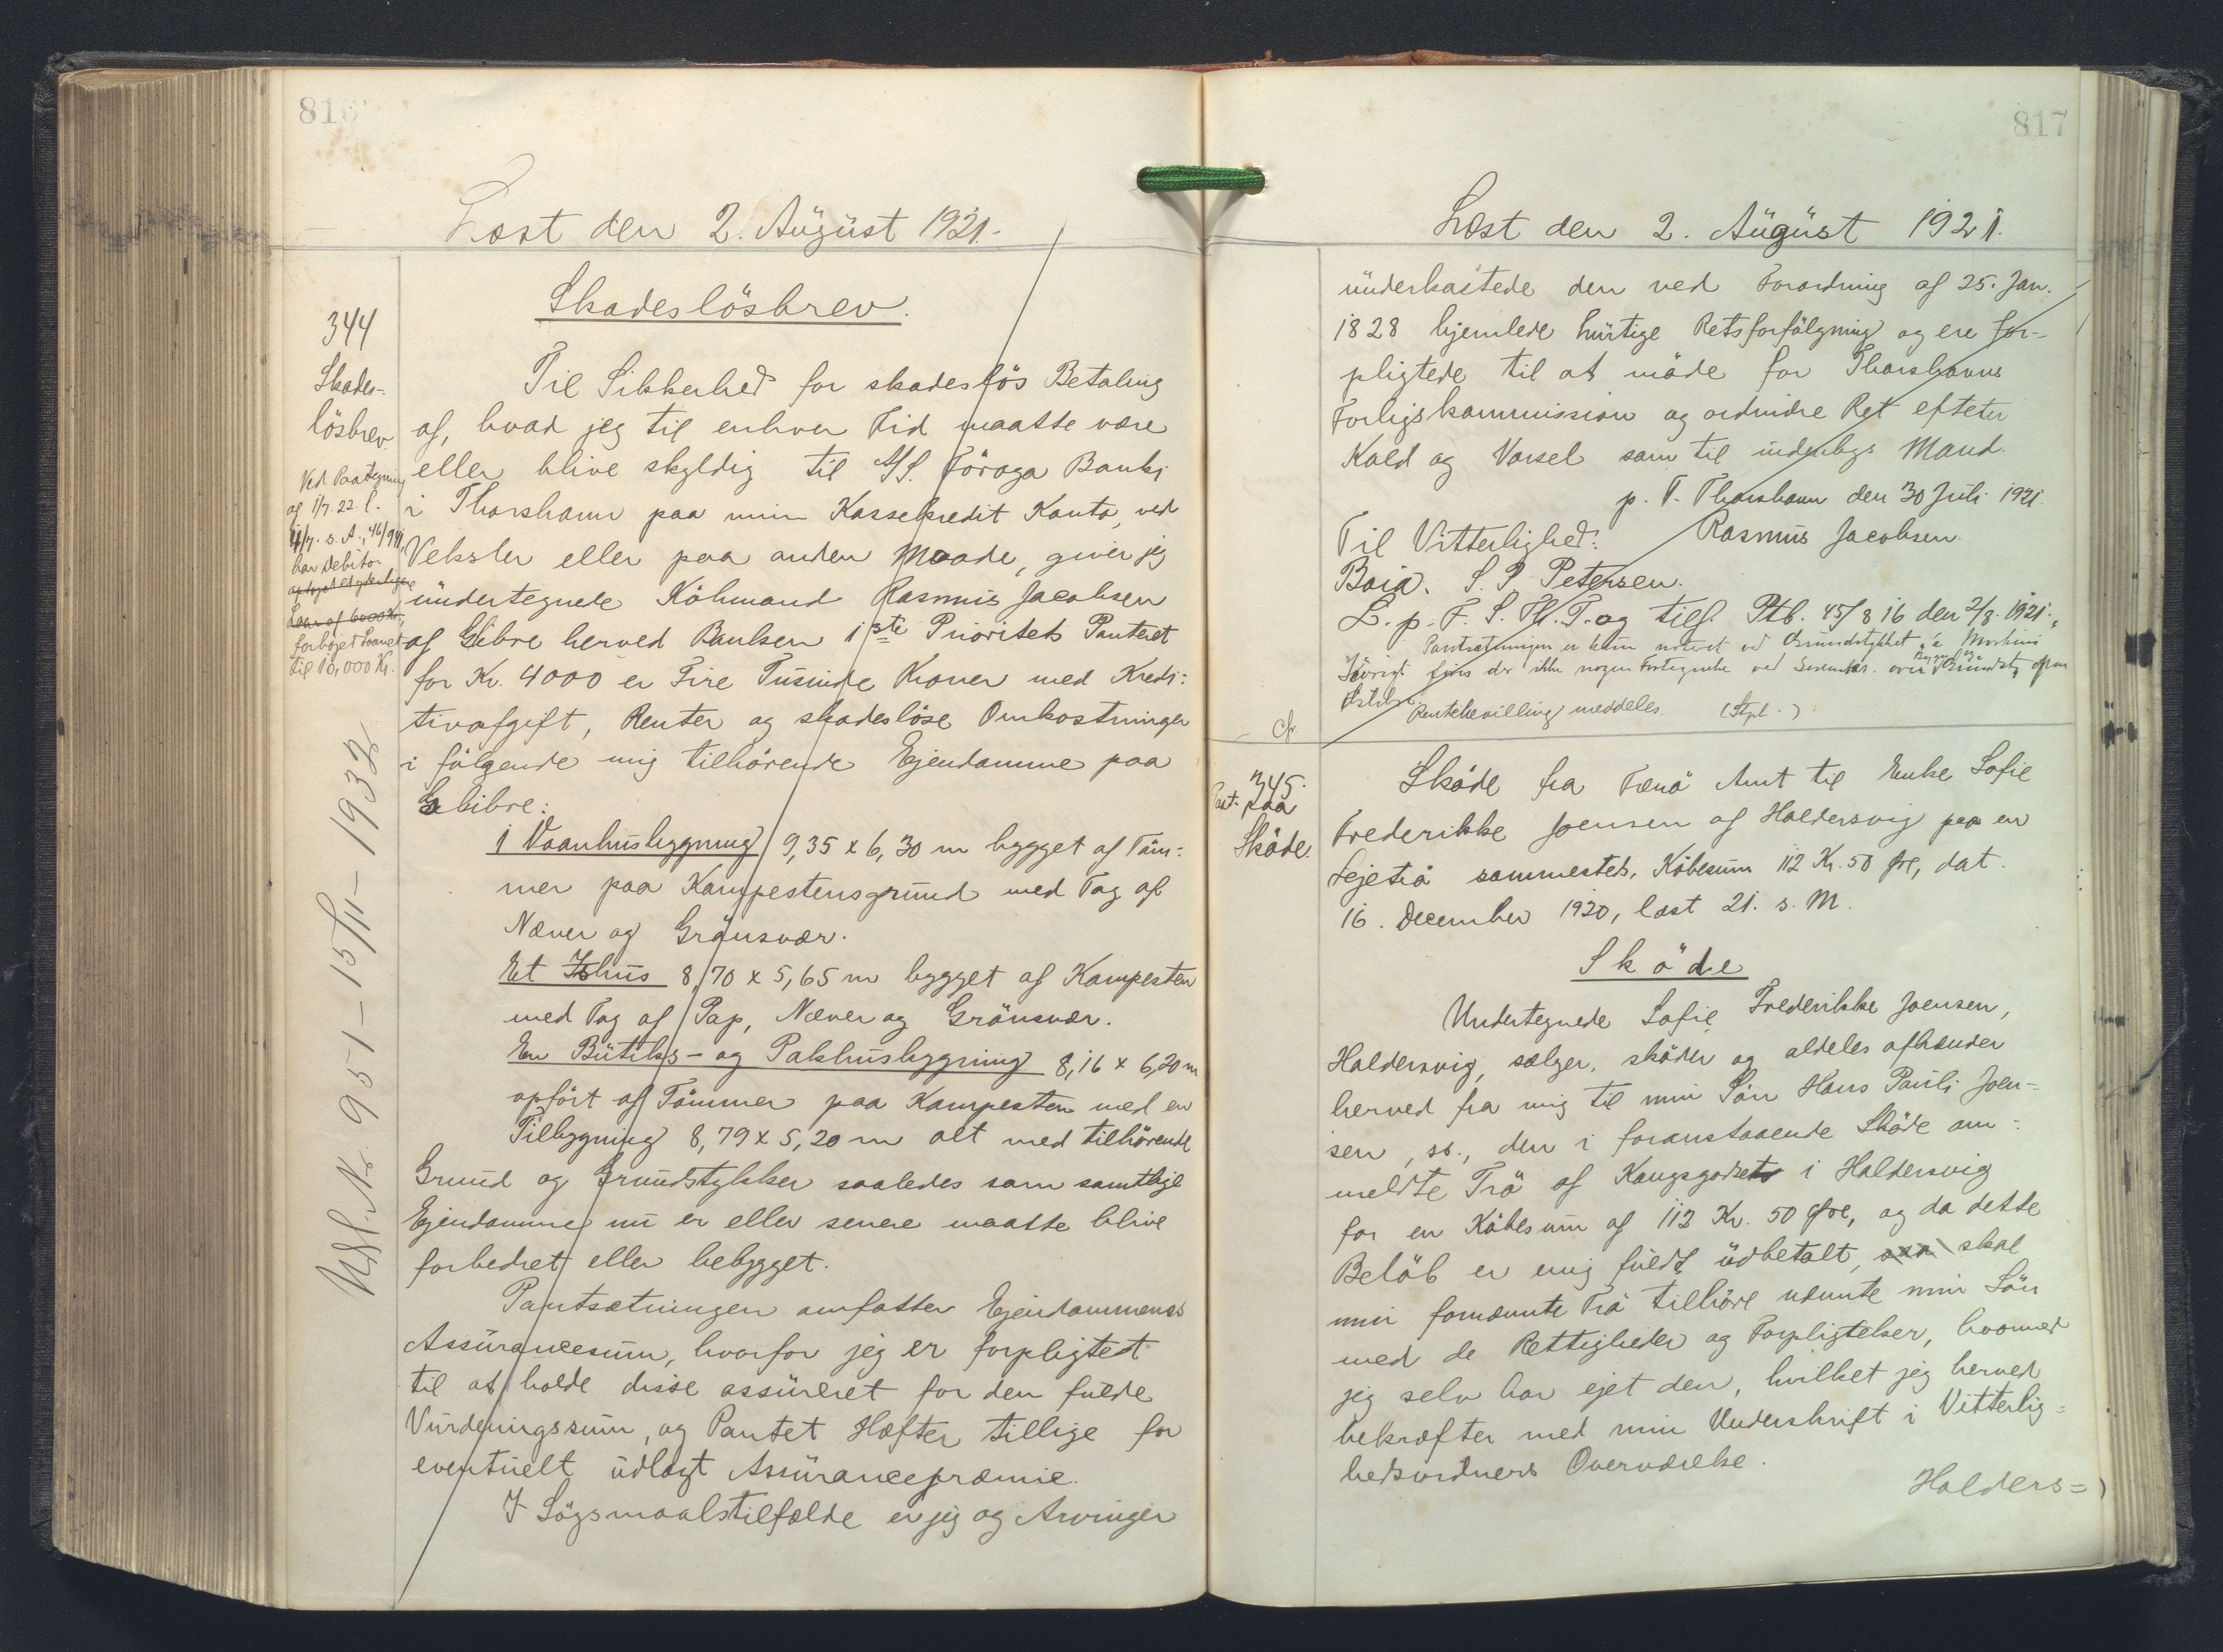 816
Læst den 2. August 1921.
344
Skades-
løsbrev
Ved Paategning
af 1/7. 22 l.
4/7. s. A., 46/941,
har Debitor
optaget et yderligere
Laan af 6000 Kr.,
forhøjet Laanet
til 10,000 Kr.
Udsl. Nr. 951 - 15/11 - 1932
Skadesløsbrev.
Til Sikkerhed for skadesløs Betaling
af, hvad jeg til enhver Tid maatte være
eller blive skyldig til A/S. Föroya Banki
i Thorshavn paa min Kassekredit Konto, ved
Veksler eller paa anden Maade, giver jeg
undertegnede Köbmand Rasmus Jacobsen
af Glibre herved Banken 1ste Prioritets Panteret
for Kr. 4000 er Fire Tusinde Kroner med Kredi-
tivafgift, Renter og skadesløse Omkostninger
i følgende mig tilhørende Ejendomme paa
Glibre:
1 Vaanhusbygning 9,35 x 6,30 m bygget af Tøm-
mer paa Kampestensgrund med Tag af
Næver og Grönsvær.
Et Ishus 8,70 x 5,65 m bygget af Kampesten
med Tag af Pap, Næver og Grönsvær.
En Butiks- og Pakhusbygning 8,16 x 6,20 m
opført af Tømmer paa Kampesten med en
Tilbygning 8,79 x 5,20 m alt med tilhørende
Grund og Grundstykker saaledes som samtlige
Ejendomme nu er eller senere maatte blive
forbedret eller bebygget.
Pantsætningen omfatter Ejendommenes
Assurancesum, hvorfor jeg er forpligtet
til at holde disse assureret for den fulde
Vurderingssum, og Pantet Hæfter tillige for
eventuelt udlagt Assurancepræmie.
I Søgsmaalstilfælde er jeg og Arvinger
817
Læst den 2. August 1921.
underkastede den ved Forordning af 25. Jan.
1828 hjemlede hurtige Retsforfølgning og ere for-
pligtede til at møde for Thorshavns
Forligskommission og ordinære Ret efter
Kald og Varsel som til indenbys Mand.
p. T. Thorshavn den 30 Juli 1921.
Til Vitterlighed: Rasmus Jacobsen.
Boia. S. P. Petersen.
L. p. F. S. Th. T. og tilf. Ptb. 45/816 den 2/8. 1921.,
Pantsætningen er kun noteret ved Grundstykket
Iøvrigt findes der ikke nogen Fortegnelse ved
Rentebevilling meddeles. (Stpl.)
Cfr.
345.
Past. paa
Skøde.
Skøde fra Færø Amt til Enke Sofie
Frederikke Joensen af Haldersvig paa en
Lejetrø sammesteds, Købesum 112 Kr. 50 Øre, dat.
16. December 1920, læst 21. s. M.
Skøde
Undertegnede Sofie Frederikke Joensen,
Haldersvig, sælger, skøder og aldeles afhænder
herved fra mig til min Søn Hans Pauli Joen-
sen, ss., den i foranstaaende Skøde om-
meldte Trø af Kongsgodset i Haldersvig
for en Købesum af 112 Kr. 50 Øre, og da dette
Beløb er mig fuldt udbetalt, saa skal
min fornævnte Trø tilhøre nævnte min Søn
med de Rettigheder og Forpligtelser, hvormed
jeg selv har ejet den, hvilket jeg herved
bekræfter med min Underskrift i Vitterlig-
hedsvidners Overværelse.
Halders=